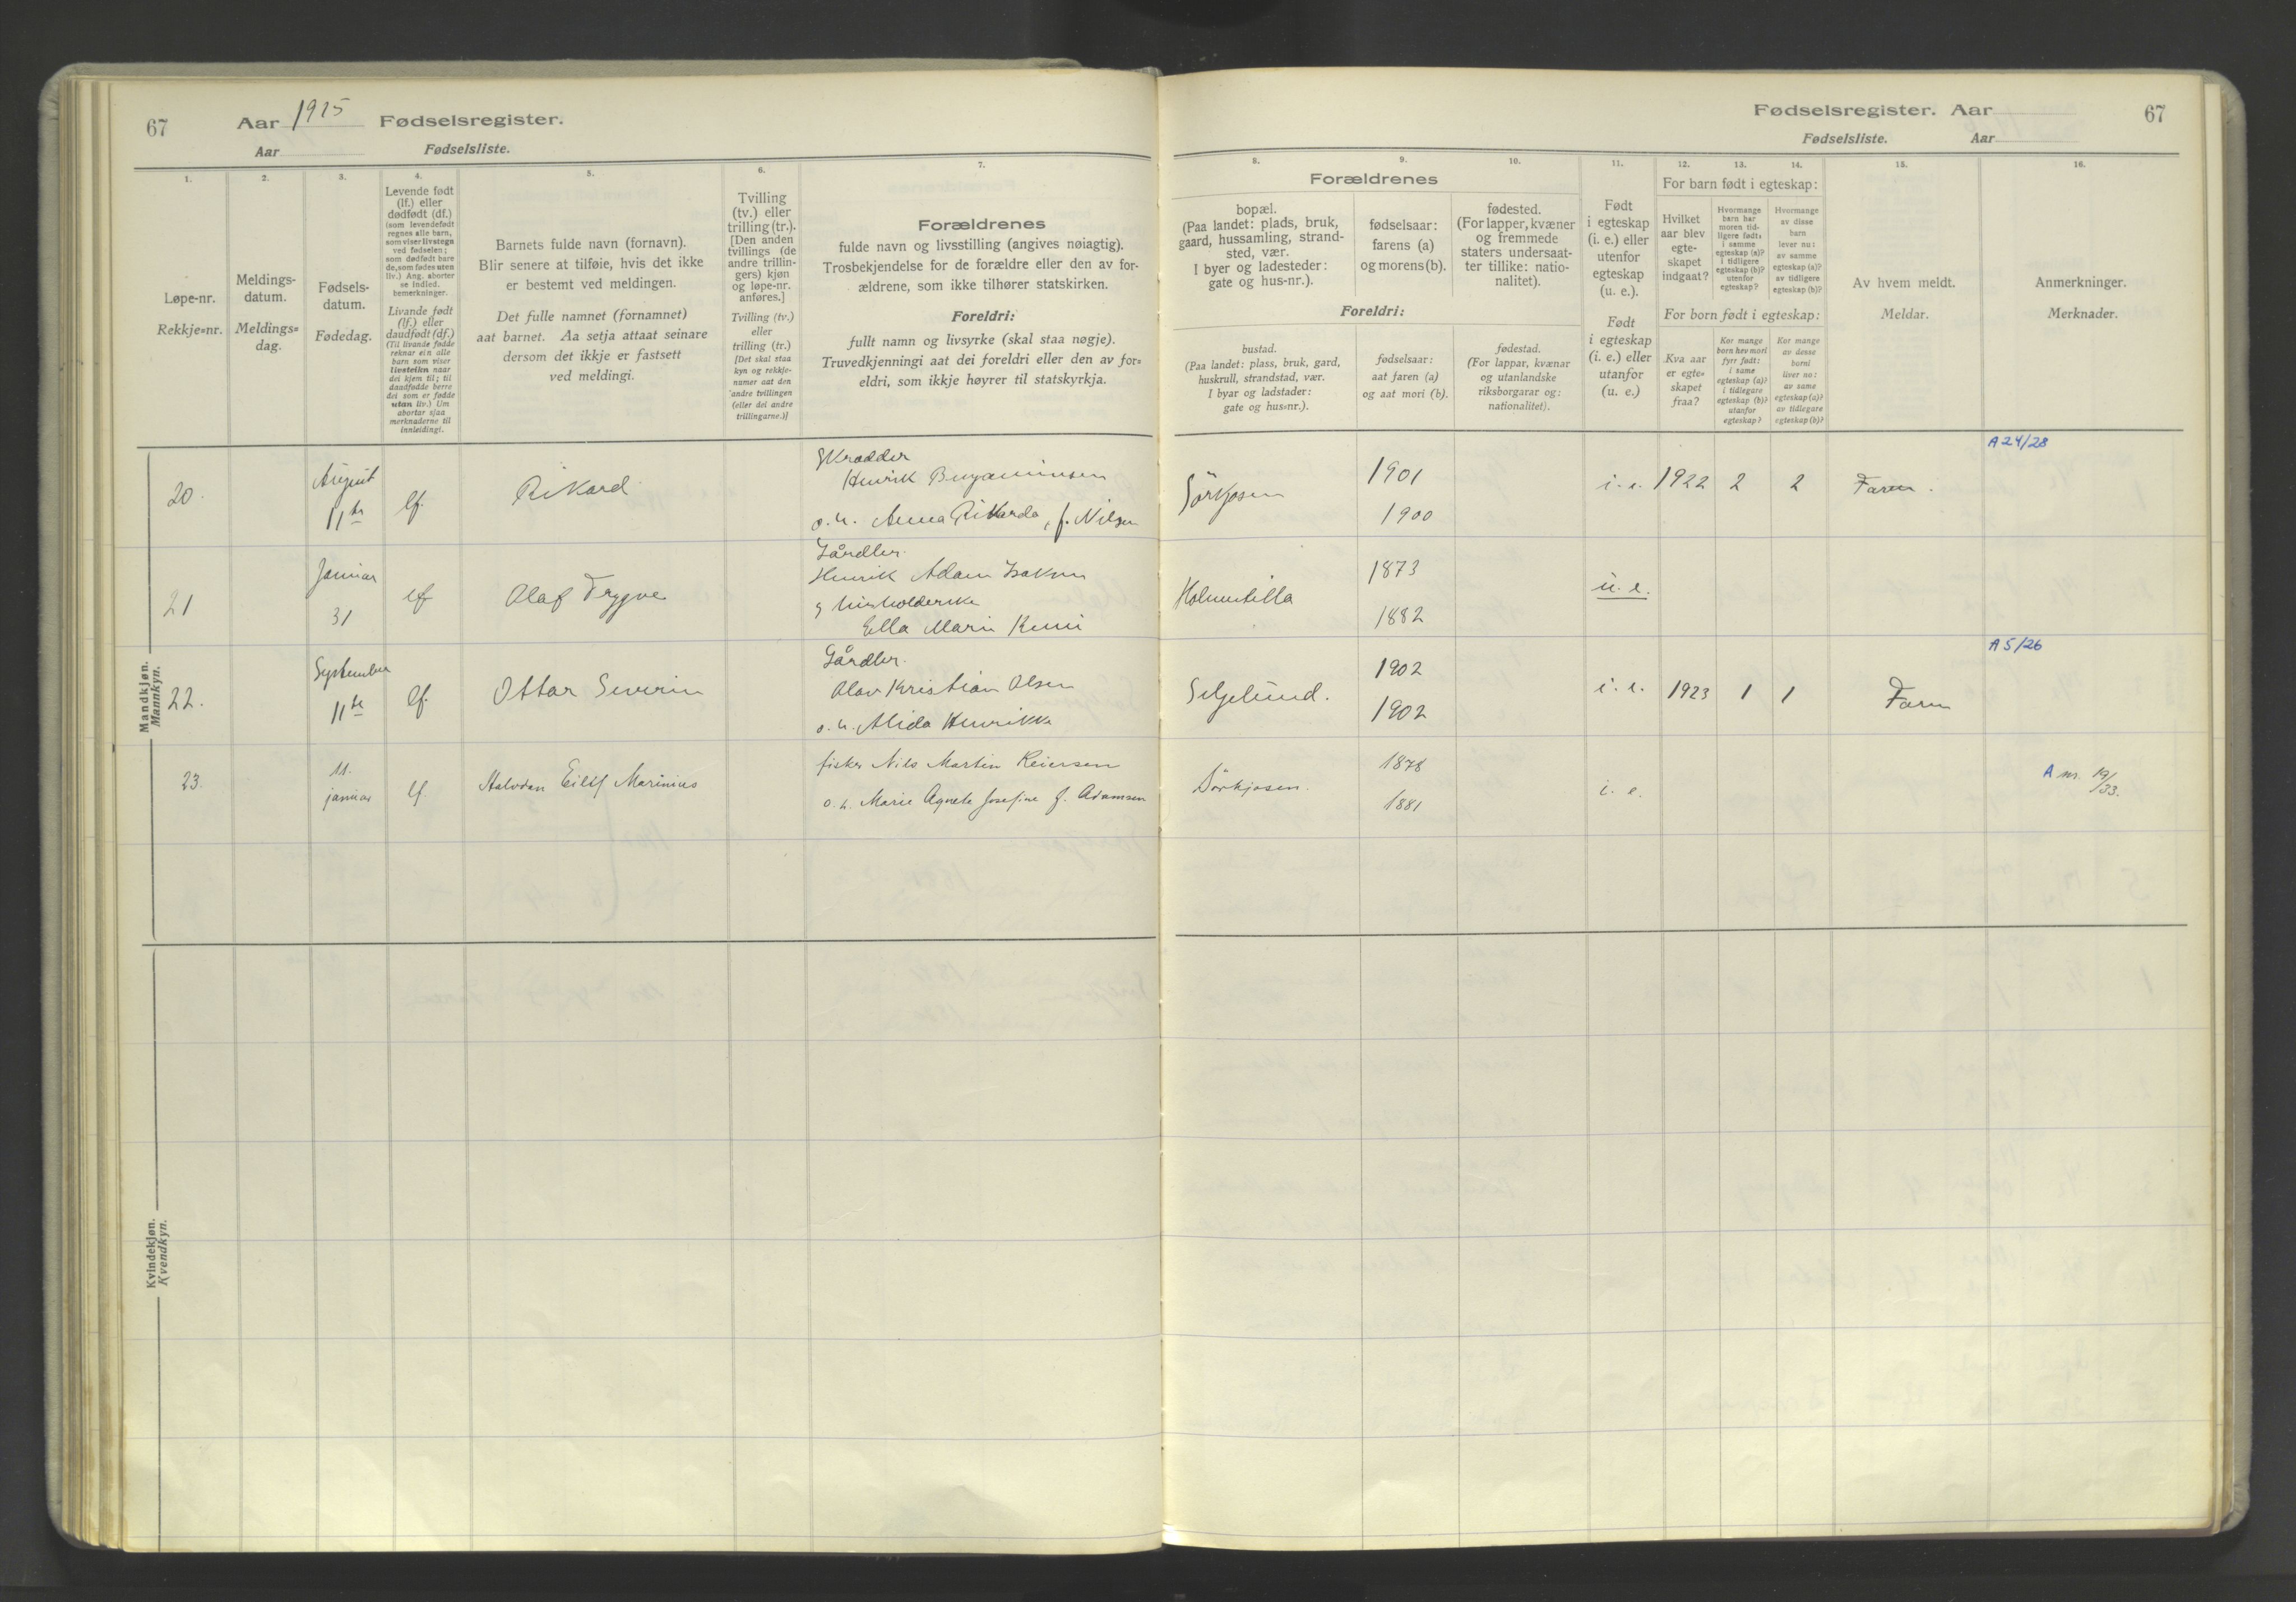 67
Aar 1925 Fødselsregister.
Aar Fødselsliste.
Fødselsregister. Aar
67
Fødselsliste. Aar
1.
Løpe-nr.
Rekkje=nr.
2.
Meldings-
datum.
Meldings=
dag.
3.
Fødsels-
datum.
Fødedag.
4.
Levende født
(lf.) eller
dødfødt (df.)
(som levendefødt
regnes alle barn,
som viser livstegn
ved fødselen;
som dødfødt bare
de, som fødes uten
liv.) Ang. aborter
se indled.
bemerkninger.
Livande født
(lf.) eller
daudfødt (df.)
(Til livande fødde
reknar ein alle
barn som viser
livsteikn naar
dei kjem til; til
daudfødde berre
dei som er fødde
utan liv.) Um
abortar sjaa
merknaderne til
innleidingi.
5.
Barnets fulde navn (fornavn).
Blir senere at tilføie, hvis det ikke
er bestemt ved meldingen.
Det fulle namnet (fornamnet)
aat barnet. Aa setja attaat seinare
dersom det ikkje er fastsett
ved meldingi.
6.
Tvilling
(tv.) eller
trilling (tr.).
[Den anden
tvillings (de
andre trillin-
gers) kjøn
og løpe-nr.
anføres.]
Tvilling (tv.)
eller
trilling (tr.)
[Det skal staa
kyn og rekkje-
numer aat den
andre tvillingen
(eller dei andre
trillingarne.)]
7.
Forældrenes
fulde navn og livsstilling (angives nøiagtig).
Trosbekjendelse for de forældre eller den av for-
ældrene, som ikke tilhører statskirken.
Foreldri:
fullt namn og livsyrke (skal staa nøgje).
Truvedkjenningi aat dei foreldri eller den av for=
eldri, som ikkje høyrer til statskyrkja.
8.
9.
10.
Forældrenes
bopæl.
(Paa landet: plads, bruk,
gaard, hussamling, strand-
sted, vær.
I byer og ladesteder:
gate og hus-nr.).
fødselsaar:
farens (a)
og morens (b).
fødested.
(For lapper, kvæner
og fremmede
staters undersaat-
ter tillike: natio-
nalitet).
Foreldri:
bustad.
(Paa landet: plass, bruk, gard,
huskrull, strandstad, vær.
I byar og ladstader:
gate og hus=nr.).
fødselsaar:
aat faren (a)
og aat mori (b).
fødestad.
(For lappar, kvænar
og utanlandske
riksborgarar og:
nationalitet).
11.
Født
i egteskap
(i. e.) eller
utenfor
egteskap
(u. e.).
Født
i egteskap
(i. e.) eller
utanfor
(u. e.)
12.
13.
14.
For barn født i egteskap:
Hvilket
aar blev
egte-
skapet
indgaat?
Hvormange
barn har
moren tid-
ligere født:
i samme
egteskap (a)?
i tidligere
egteskap (b)?
utenfor
egteskap?
Hvormange
av disse
barn
lever nu:
av samme
egteskap (a)?
av tidligere
egteskap (b)?
For born født i egteskap:
Kva aar
er egte=
skapet
fraa?
Kor mange
born hev mori
fyrr født:
i same
egteskap (a)?
i tidlegare
egteskap (b)?
utanfor
egteskap?
Kor mange
av desse
borni
liver no:
av same
egteskap (a)?
av tidlegare
egteskap (b)?
15.
Av hvem meldt.
Meldar.
16.
Anmerkninger.
Merknader.
Mandkjøn.
Mannkyn.
20. August 11te lf. Rikard
Skrædder
Henrik Benjaminsen
o. h. Anna Rikarda, f. Nilsen
Sörkjosen 1901 1900 i. e. 1922 2 2 Faren. A 24/28
21 Januar 31 lf Olaf Trygve
Gårdbr.
Henrik Adam Isaksen
Ella Marie
1873 1882 u. e.
22. September 11te lf. Ottar Severin
Gårdbr.
Olav Kristian Olsen
o. h. Alida Henrikke
Seljelund. 1902 1902 i. e. 1923 1 1 Faren A 5/26
23. 11. januar lf. Halvdan Eilif Marinius
fisker Nils Martin Reiersen
o. h. Marie Agnete Josefine f. Adamsen
Sörkjosen. 1878 1881 i. e. A nr. 19/33.
Kvindekjøn.
Kvendkyn.